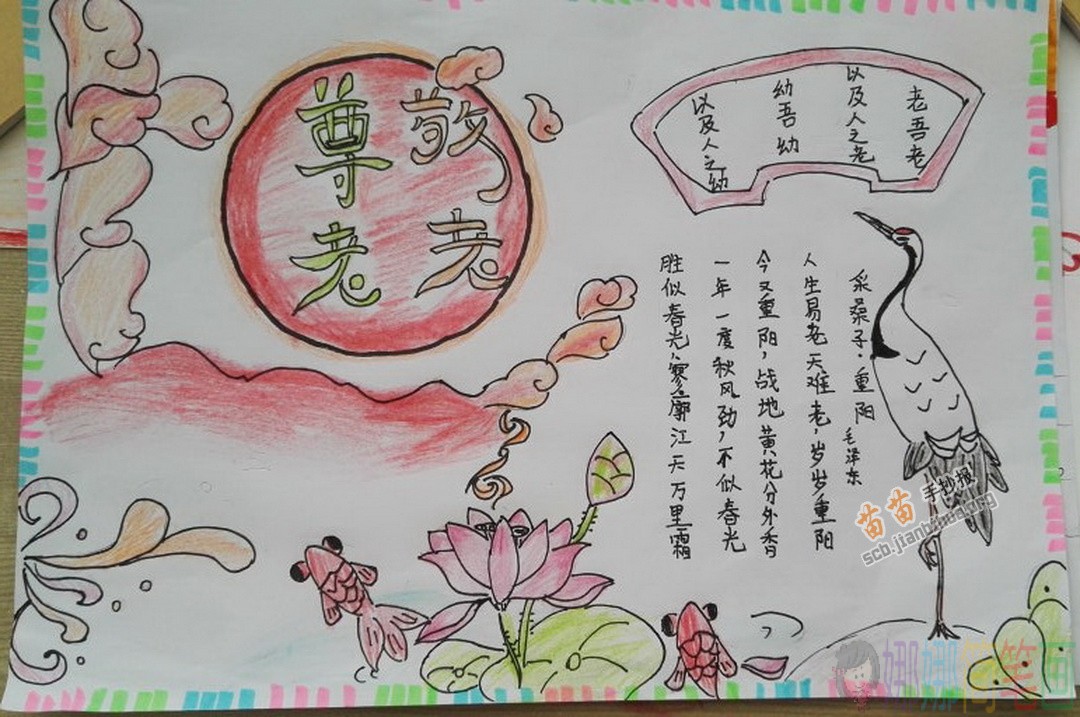 敬老
尊老
老吾老
以及人之老
幼吾幼
以及人之幼
采桑子·重阳
毛泽东
人生易老天难老,岁岁重阳
今又重阳,战地黄花分外香
一年一度秋风劲,不似春光
胜似春光,寥廓江天万里霜
苗苗手抄报
scb.jianbihua.org
娜娜简笔画